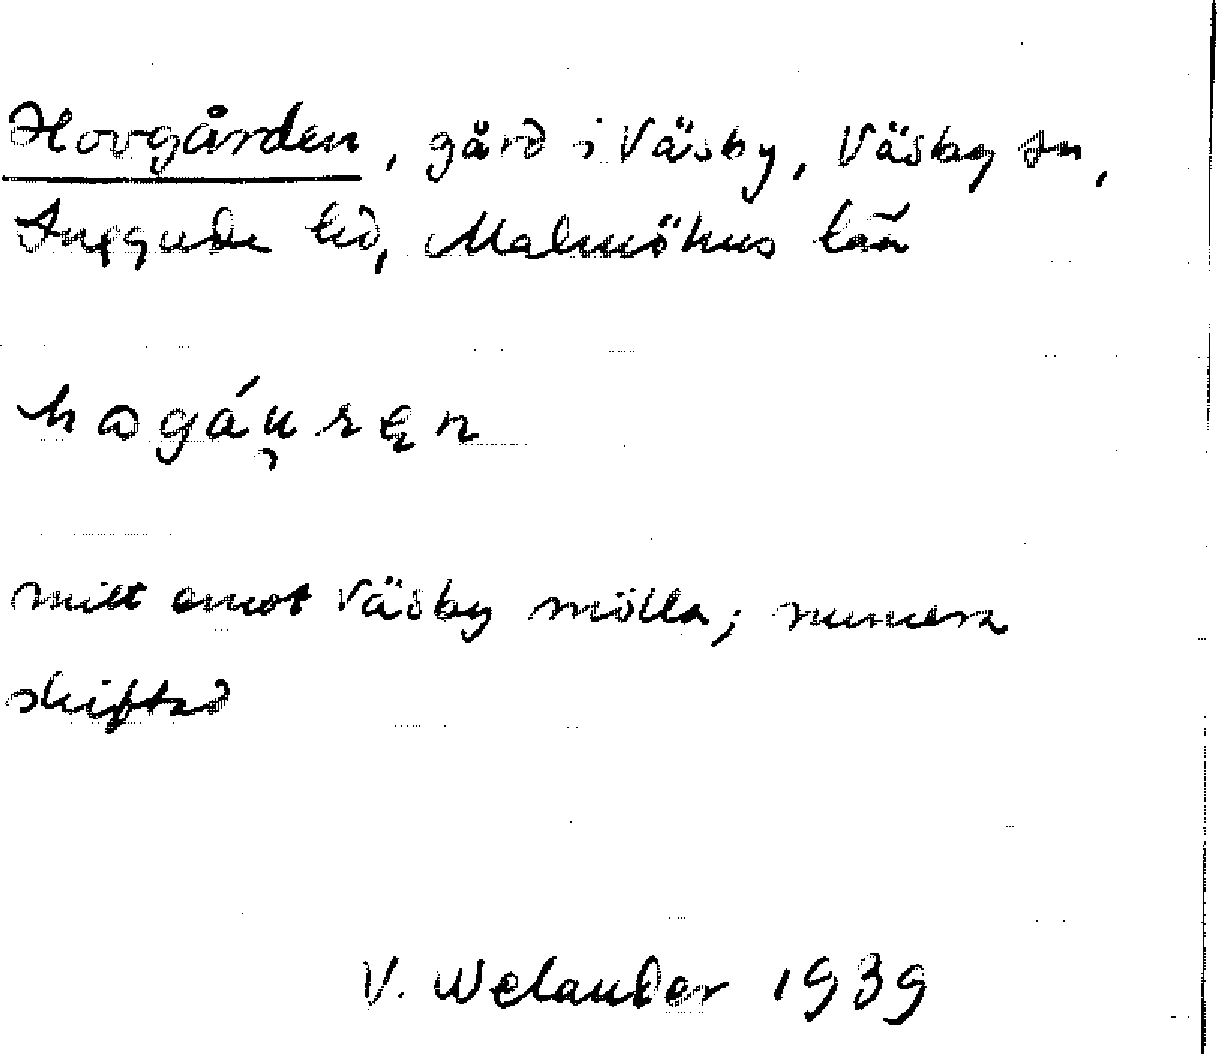 Hovgården, gård i Väsby, Väsby sn,
Luggude hd, Malmöhus län
hagáu̯ren
mitt emot Väsby mölla; numera
skiftad
V. Welander 1939